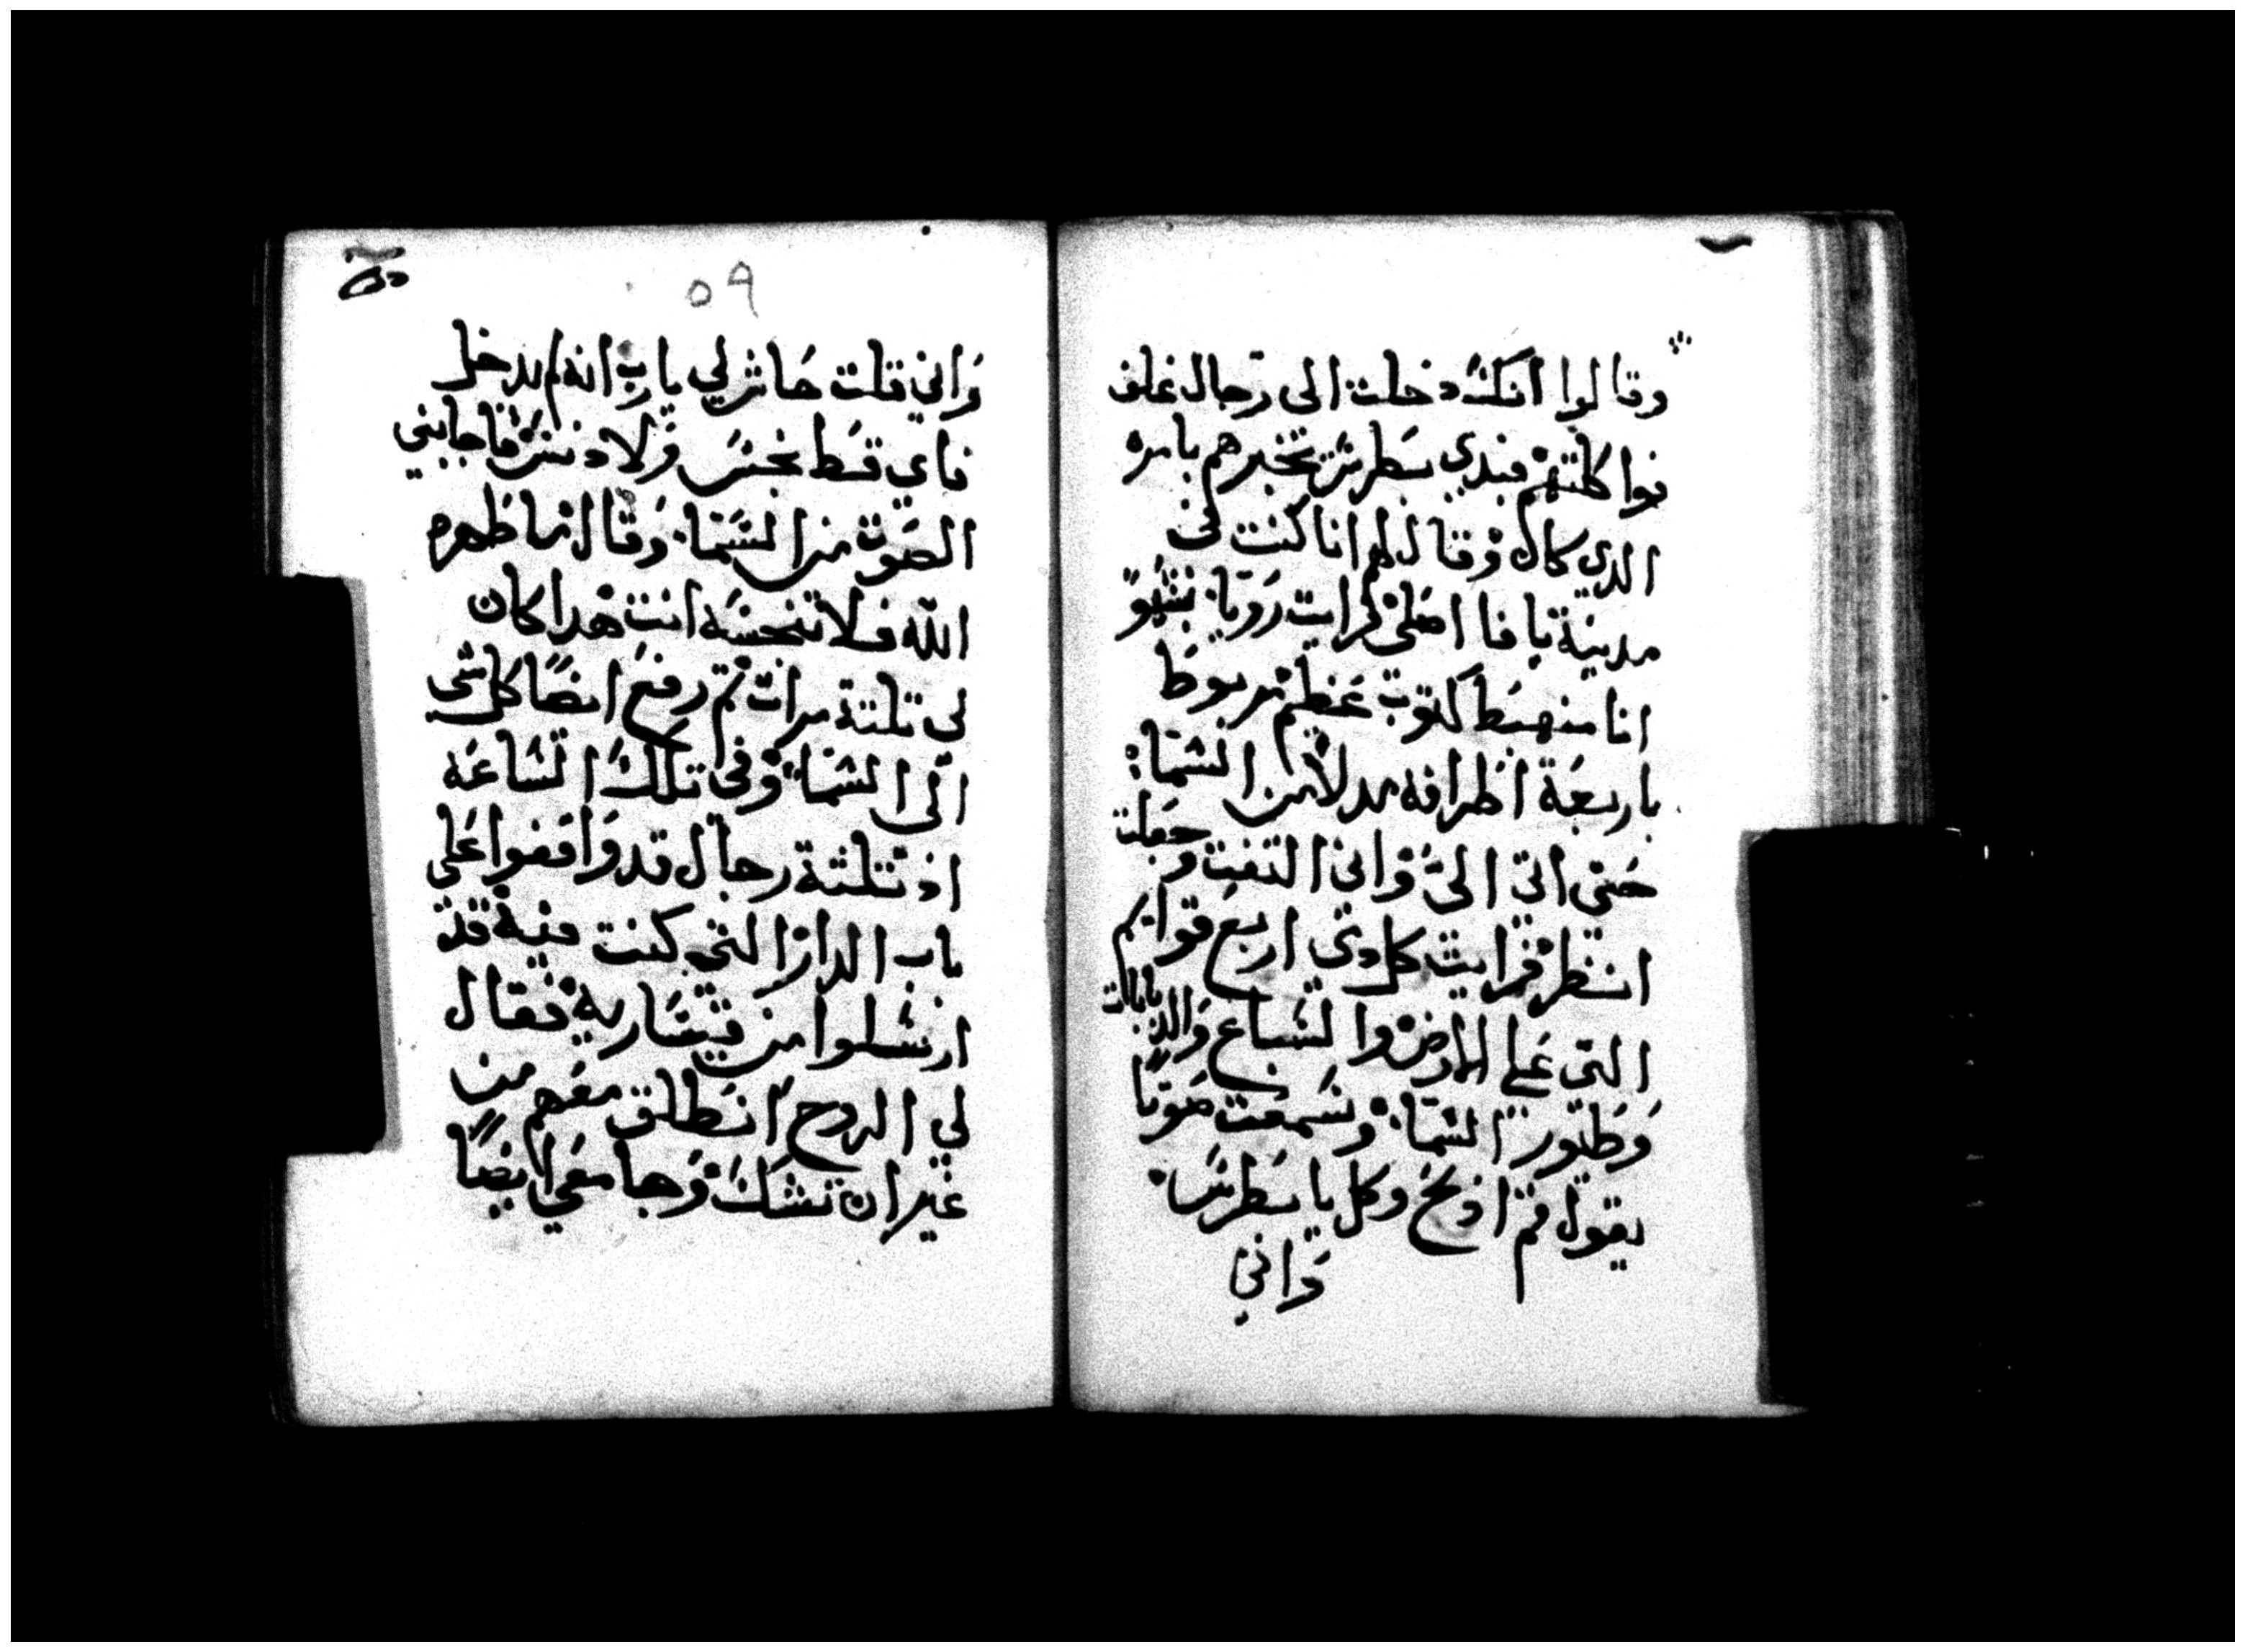 وقالوا انك دخلت الى رجال غلف
فواكلتهم فبدي بطرس تخبرهم بامره
الدي كان وقال لهم انا كنت في
مدينة يافا اصلي فرايت رويا بشهو
انا منهبط كتوب عظيم مربوط
باربعة اطرافه مدلا من السما
حتي اتي الي واني التفت وجعلت
انتظر فرايت كل دي اربع قوايم
التي علي الارض والسباع والدبابات
وطيور السما وسمعت صوتا
يقول قم ادبح وكل يا بطرس
واني
٥٩
واني قلت حاش لي يارب انه لم يدخل
فاي قط نجس ولا دنس فاجابني
الصوت من السما وقال ما طهره
الله فلا تنجسه انت هدا كان
لي تلتة مرات تم رفع ايضا كل شي
الى السما وفي تلك الساعة
اذ تلتة رجال قد واقفوا علي
باب الدار التي كنت فيه قد
ارسلوا من قيسارية فقال
لي الروح انطلق معهم من
غير ان تشك وجا معي ايضا